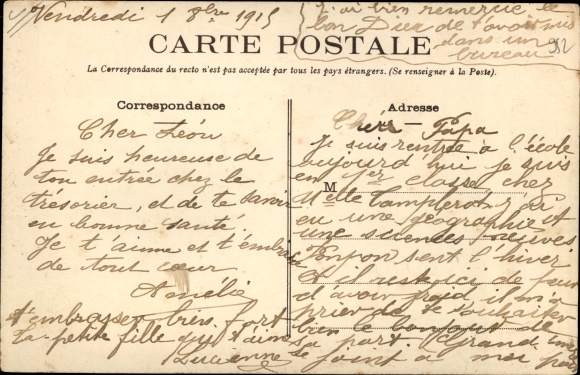 Vendredi 1 8bre 1915
J'ai bien remercié le
bon Dieu de t'avoir mis
dans un
bureau
CARTE POSTALE
La Correspondance du recto n'est pas acceptée par tous les pays étrangers. (Se renseigner à la Poste).
Correspondance
Cher Léon
Je suis heureuse de
ton entrée chez le
trésorier, et de te savoir
en bonne santé,
Je t'aime et t'embrasse
de tout cœur
Amélie
Adresse
Cher Papa
Je suis rentrée à l'école
aujourd'hui je suis
en 1er classe chez
M
Melle j'ai
eu une géographie et
une sciences
Ponpon sent l'hiver
et il ici de
d'avoir froid il m'a
prier de te souhaiter
bien le bonjour de
sa part. Grand
se joint à moi pour
t'embrasser bien fort
ta petite fille qui t'aime
Lucienne